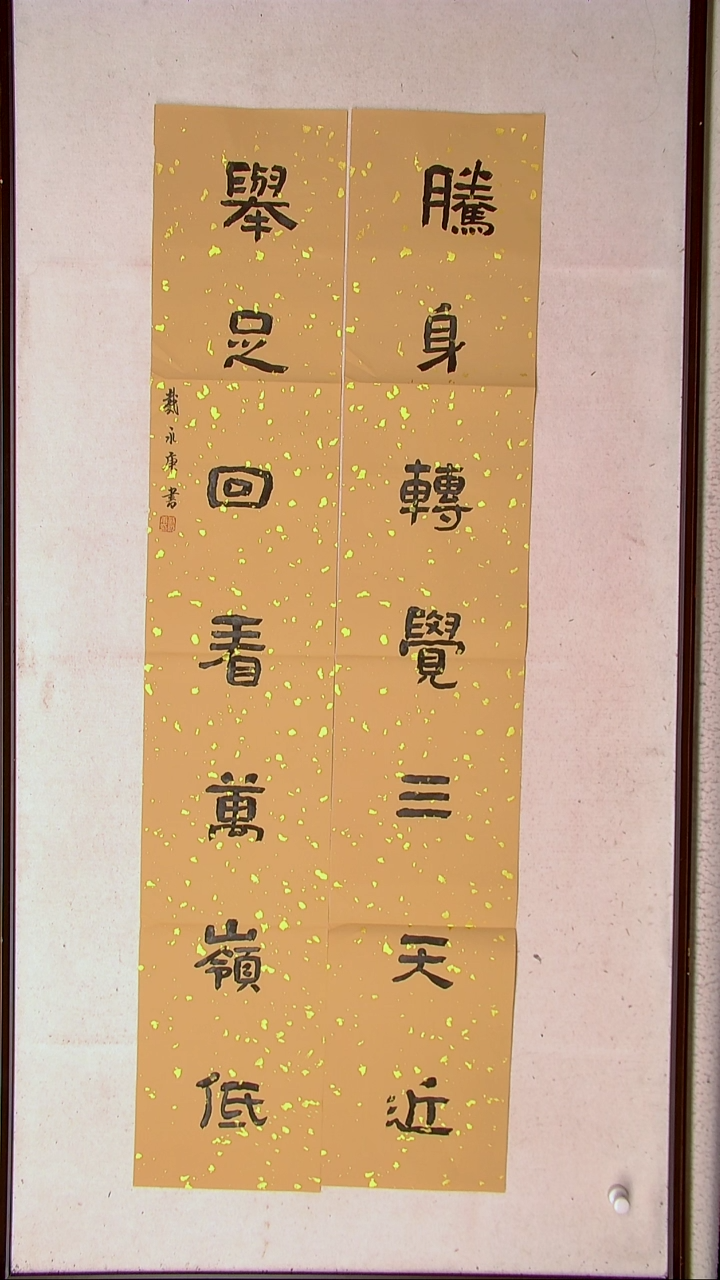 騰身轉覺三天近
舉足回看萬嶺低
戴永康書